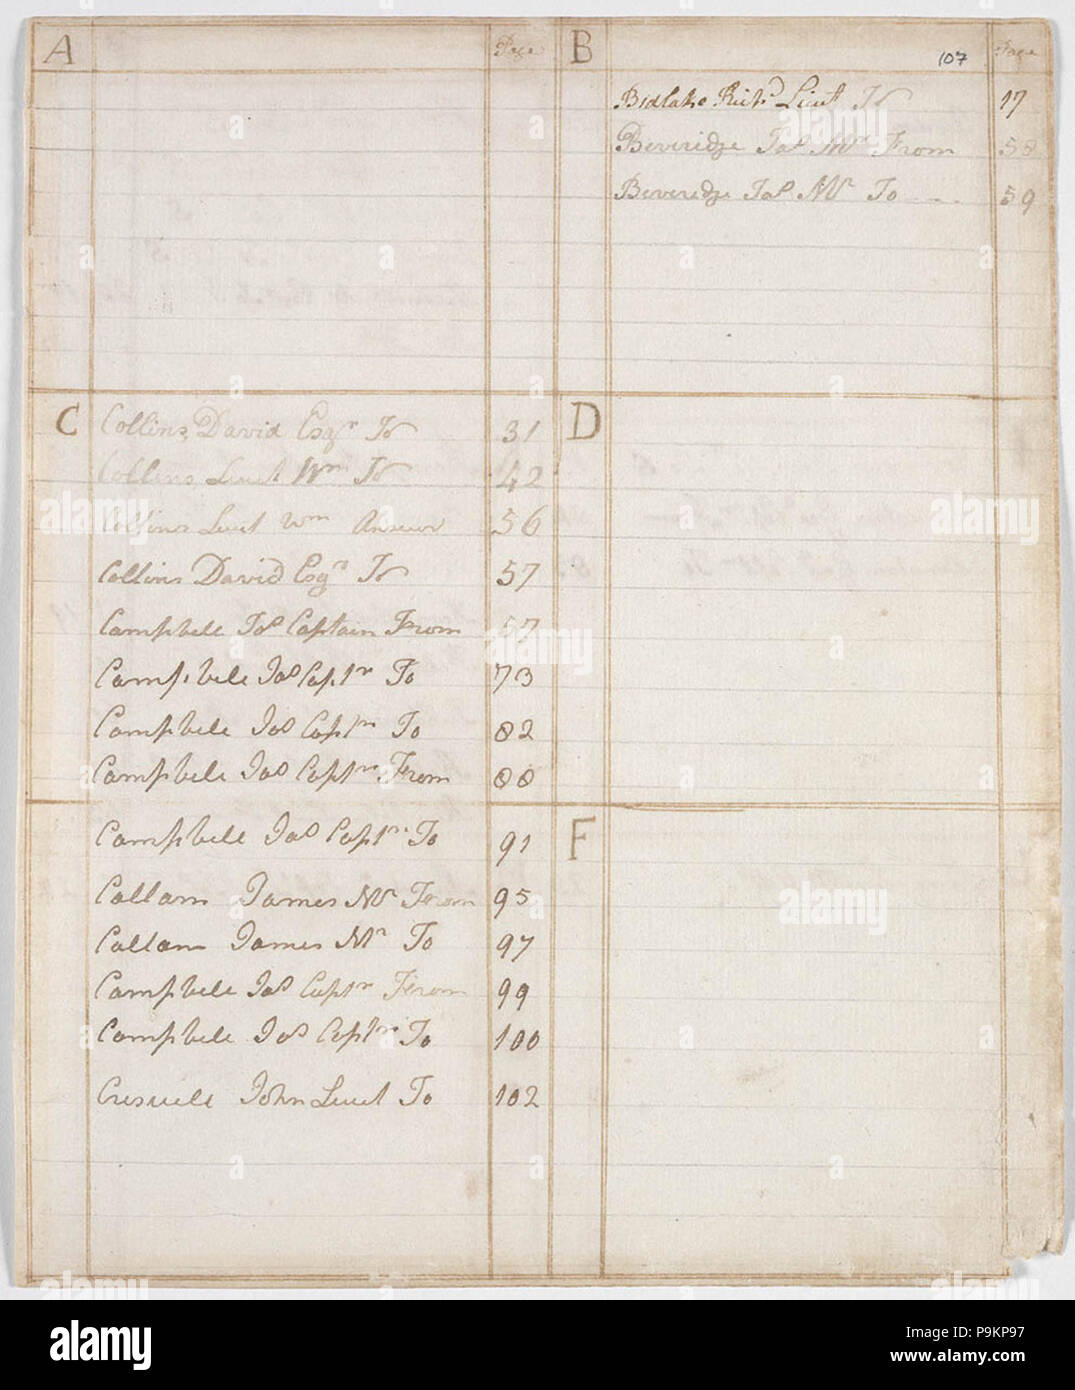 A Page
B 107 Page
Bidlake Rich^d Lieut To 17
Beveridge Ja^s M^r From 58
Beveridge Ja^s M^r To 59
C
Collins, David Esq^r To 31
Collins Lieut W^m To 42
Collins Lieut W^m Answer 56
Collins David Esq^r To 57
Campbell Ja^s Captain From 57
Campbell Ja^s Capt^n To 73
Campbell Ja^s Capt^n To 82
Campbell Ja^s Capt^n From 88
Campbell Ja^s Capt^n To 91
Callam James M^r From 95
Callam James M^r To 97
Campbell Ja^s Capt^n From 99
Campbell Ja^s Capt^n To 100
Creswell John Lieut To 102
D
F
alamy
a
alamy
Image ID: P9KP97
www.alamy.com